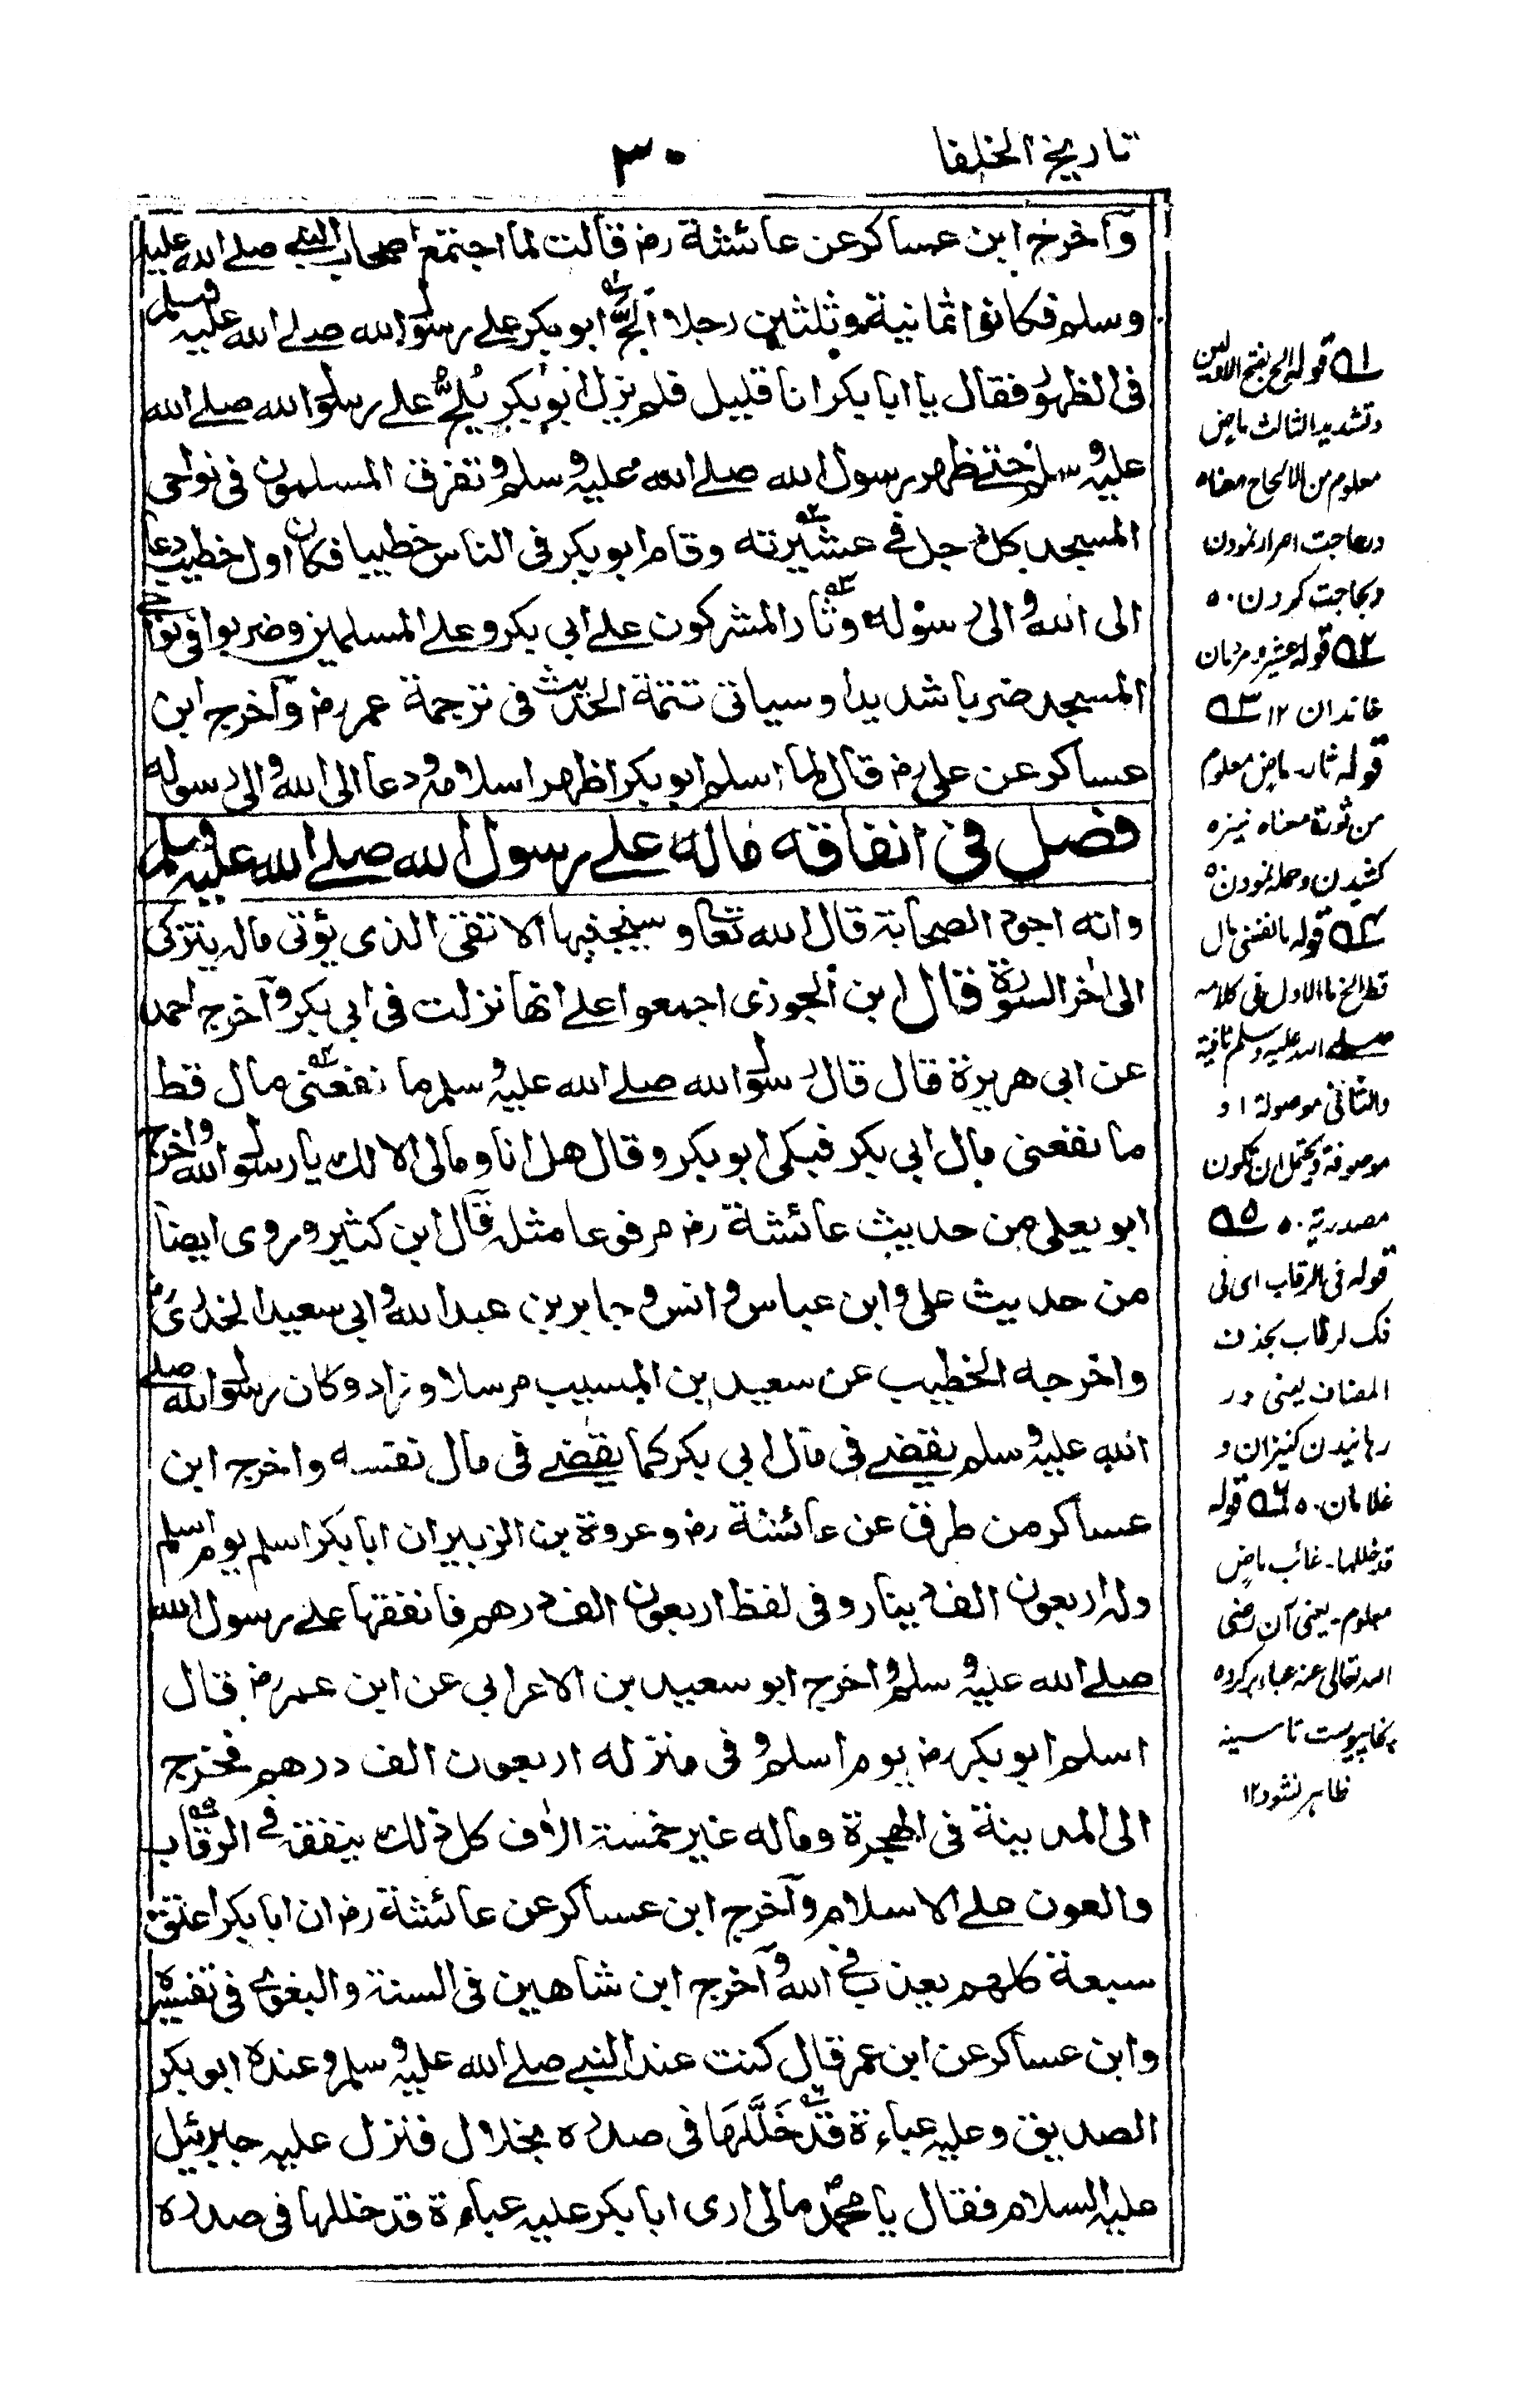 تاريخ الخلفا
٣٠
وآخرج ابن عساكر عن عائشة رض قالت لما اجتمع اصحاب النبي صلے الله عليه
وسلم فكانوا ثمانية وثلثين رجلا اَلَحَّ ابو بكر علے رسول الله صلے الله عليه وسلم
فى الظهور فقال يا ابا بكر انا قليل فلم يزل ابو بكر يُلِحُّ علے رسول الله صلے الله
عليه وسلم حتے ظهر رسول الله صلے الله عليه وسلم وتفرق المسلمون فى نواحى
المسجد كل رجل فے عشيرته وقام ابو بكر فى الناس خطيبا فكان اول خطيب دعا
الى الله والى رسوله وثار المشركون علے ابى بكر وعلے المسلمين وضربوا فى نواحے
المسجد ضربا شديدا وسياتى تتمة الحديث فى ترجمة عمر رض وآخرج ابن
عساكر عن على رض قال لما اسلم ابو بكر اظهر اسلامه ودعا الى الله والى رسوله
فصل فى انفاقه ماله علے رسول الله صلے الله عليه وسلم
وانه اجود الصحابة قال الله تعا وسيجنبها الاتقى الذى يؤتى ماله يتزكى
الى اٰخر السورة قال ابن الجوزى اجمعوا علے انها نزلت فى ابى بكر وآخرج احمد
عن ابى هريرة قال قال رسول الله صلے الله عليه وسلم ما نفعنى مال قط
ما نفعنى مال ابى بكر فبكى ابو بكر وقال هل انا ومالى الا لك يا رسول الله واخرج
ابو يعلى من حديث عائشة رض مرفوعا مثله قال ابن كثير وروى ايضا
من حديث على وابن عباس وانس وجابر بن عبد الله وابى سعيد الخدرى رض
واخرجه الخطيب عن سعيد بن المسيب مرسلا وزاد وكان رسول الله صلے
الله عليه وسلم يقضے فى مال ابى بكر كما يقضے فى مال نفسه واخرج ابن
عساكر من طرق عن عائشة رض وعروة بن الزبير ان ابا بكر اسلم يوم اسلم
وله اربعون الف دينار وفى لفظ اربعون الف درهم فانفقها علے رسول الله
صلے الله عليه وسلم واخرج ابو سعيد بن الاعرابى عن ابن عمر رض قال
اسلم ابو بكر رض يوم اسلم وفى منزله اربعون الف درهم فخرج
الى المدينة فى الهجرة وماله غير خمسة الاف كل ذلك ينفقه فے الرقاب
والعون علے الاسلام وآخرج ابن عساكر عن عائشة رض ان ابا بكر اعتق
سبعة كلهم يعذب فے الله وآخرج ابن شاهين فى السنة والبغوى فى تفسيره
وابن عساكر عن ابن عمر قال كنت عند النبے صلے الله عليه وسلم وعنده ابو بكر
الصديق وعليه عباءة قَدْ خَلَّلَهَا فى صدره بخلال فنزل عليه جبرئيل
عليه السلام فقال يا محمد مالى ارى ابا بكر عليه عباءة قد خللها فى صدره
۱ قوله الح بفتح الاولين
وتشديد الثالث ماض
معلوم من الالحاح معناه
در حاجت اصرار نمودن
ولجاجت كردن ۰
۲ قوله عشير و مردمان
خاندان ۱۲ ۳
قوله ثار۔ ماض معلوم
من ثورة معناه نيزه
كشيدن وحمله نمودن
۴ قوله ما نفعنى مال
قط الخ ما الاول فى كلامه
صلے الله عليه وسلم نافية
والثانى موصولة او
موصوفة ويحتمل ان تكون
مصدرية ۰ ۵
قوله فى الرقاب اى فى
فك الرقاب بحذف
المضاف يعنى در
رهانيدن كنيزان و
غلامان ۰ ۶ قوله
قد خللها۔ غائب ماض
معلوم۔ يعنى آن رضى
الله تعالى عنه عباء بر كرده
بخار پيوست تا سينه
ظاهر نشود ۱۲